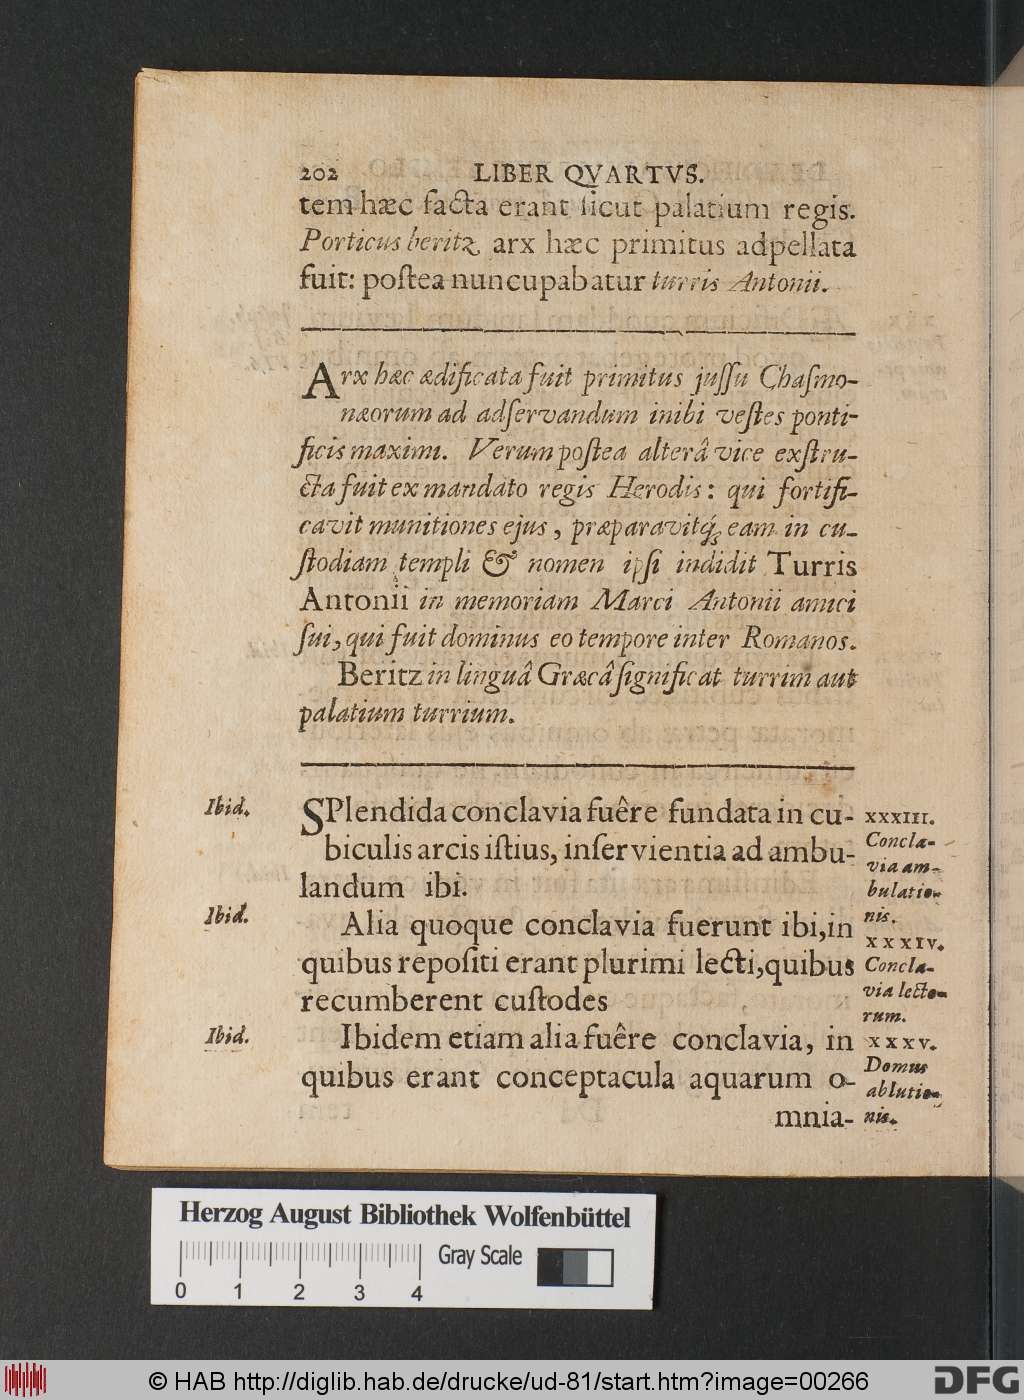 202 LIBER QVARTVS.
tem hæc facta erant sicut palatium regis.
Porticus beritz arx hæc primitus adpellata
fuit: postea nuncupabatur turris Antonii.
Arx hæc ædificata fuit primitus jussu Chasmo-
næorum ad adservandum inibi vestes ponti-
ficis maximi. Verum postea alterâ vice exstru-
cta fuit ex mandato regis Herodis: qui fortifi-
cavit munitiones ejus, præparavitq́; eam in cu-
stodiam templi & nomen ipsi indidit Turris
Antonii in memoriam Marci Antonii amici
sui, qui fuit dominus eo tempore inter Romanos.
Beritz in linguâ Græcâ significat turrim aut
palatium turrium.
Ibid.
SPlendida conclavia fuêre fundata in cu-
biculis arcis istius, inservientia ad ambu-
landum ibi.
XXXIII.
Concla-
via am-
bulatio-
nis.
Ibid.
Alia quoque conclavia fuerunt ibi, in
quibus repositi erant plurimi lecti, quibus
recumberent custodes
XXXIV.
Concla-
via lecto-
rum.
Ibid.
Ibidem etiam alia fuêre conclavia, in
quibus erant conceptacula aquarum o-
mnia-
XXXV.
Domus
ablutio-
nis.
Herzog August Bibliothek Wolfenbüttel
Gray Scale
0 1 2 3 4
© HAB http://diglib.hab.de/drucke/ud-81/start.htm?image=00266
DFG